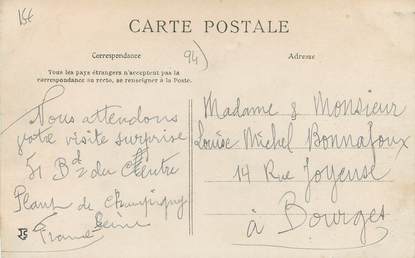 15€
CARTE POSTALE
94)
Correspondance
Adresse
Tous les pays étrangers n'acceptent pas la
correspondance au recto, se renseigner à la Poste.
Nous attendons
votre visite surprise
51 Bd du Centre
Plant de Champigny
Seine
Madame & Monsieur
Louise Michel Bonnafoux
14 Rue Joyeuse
à Bourges